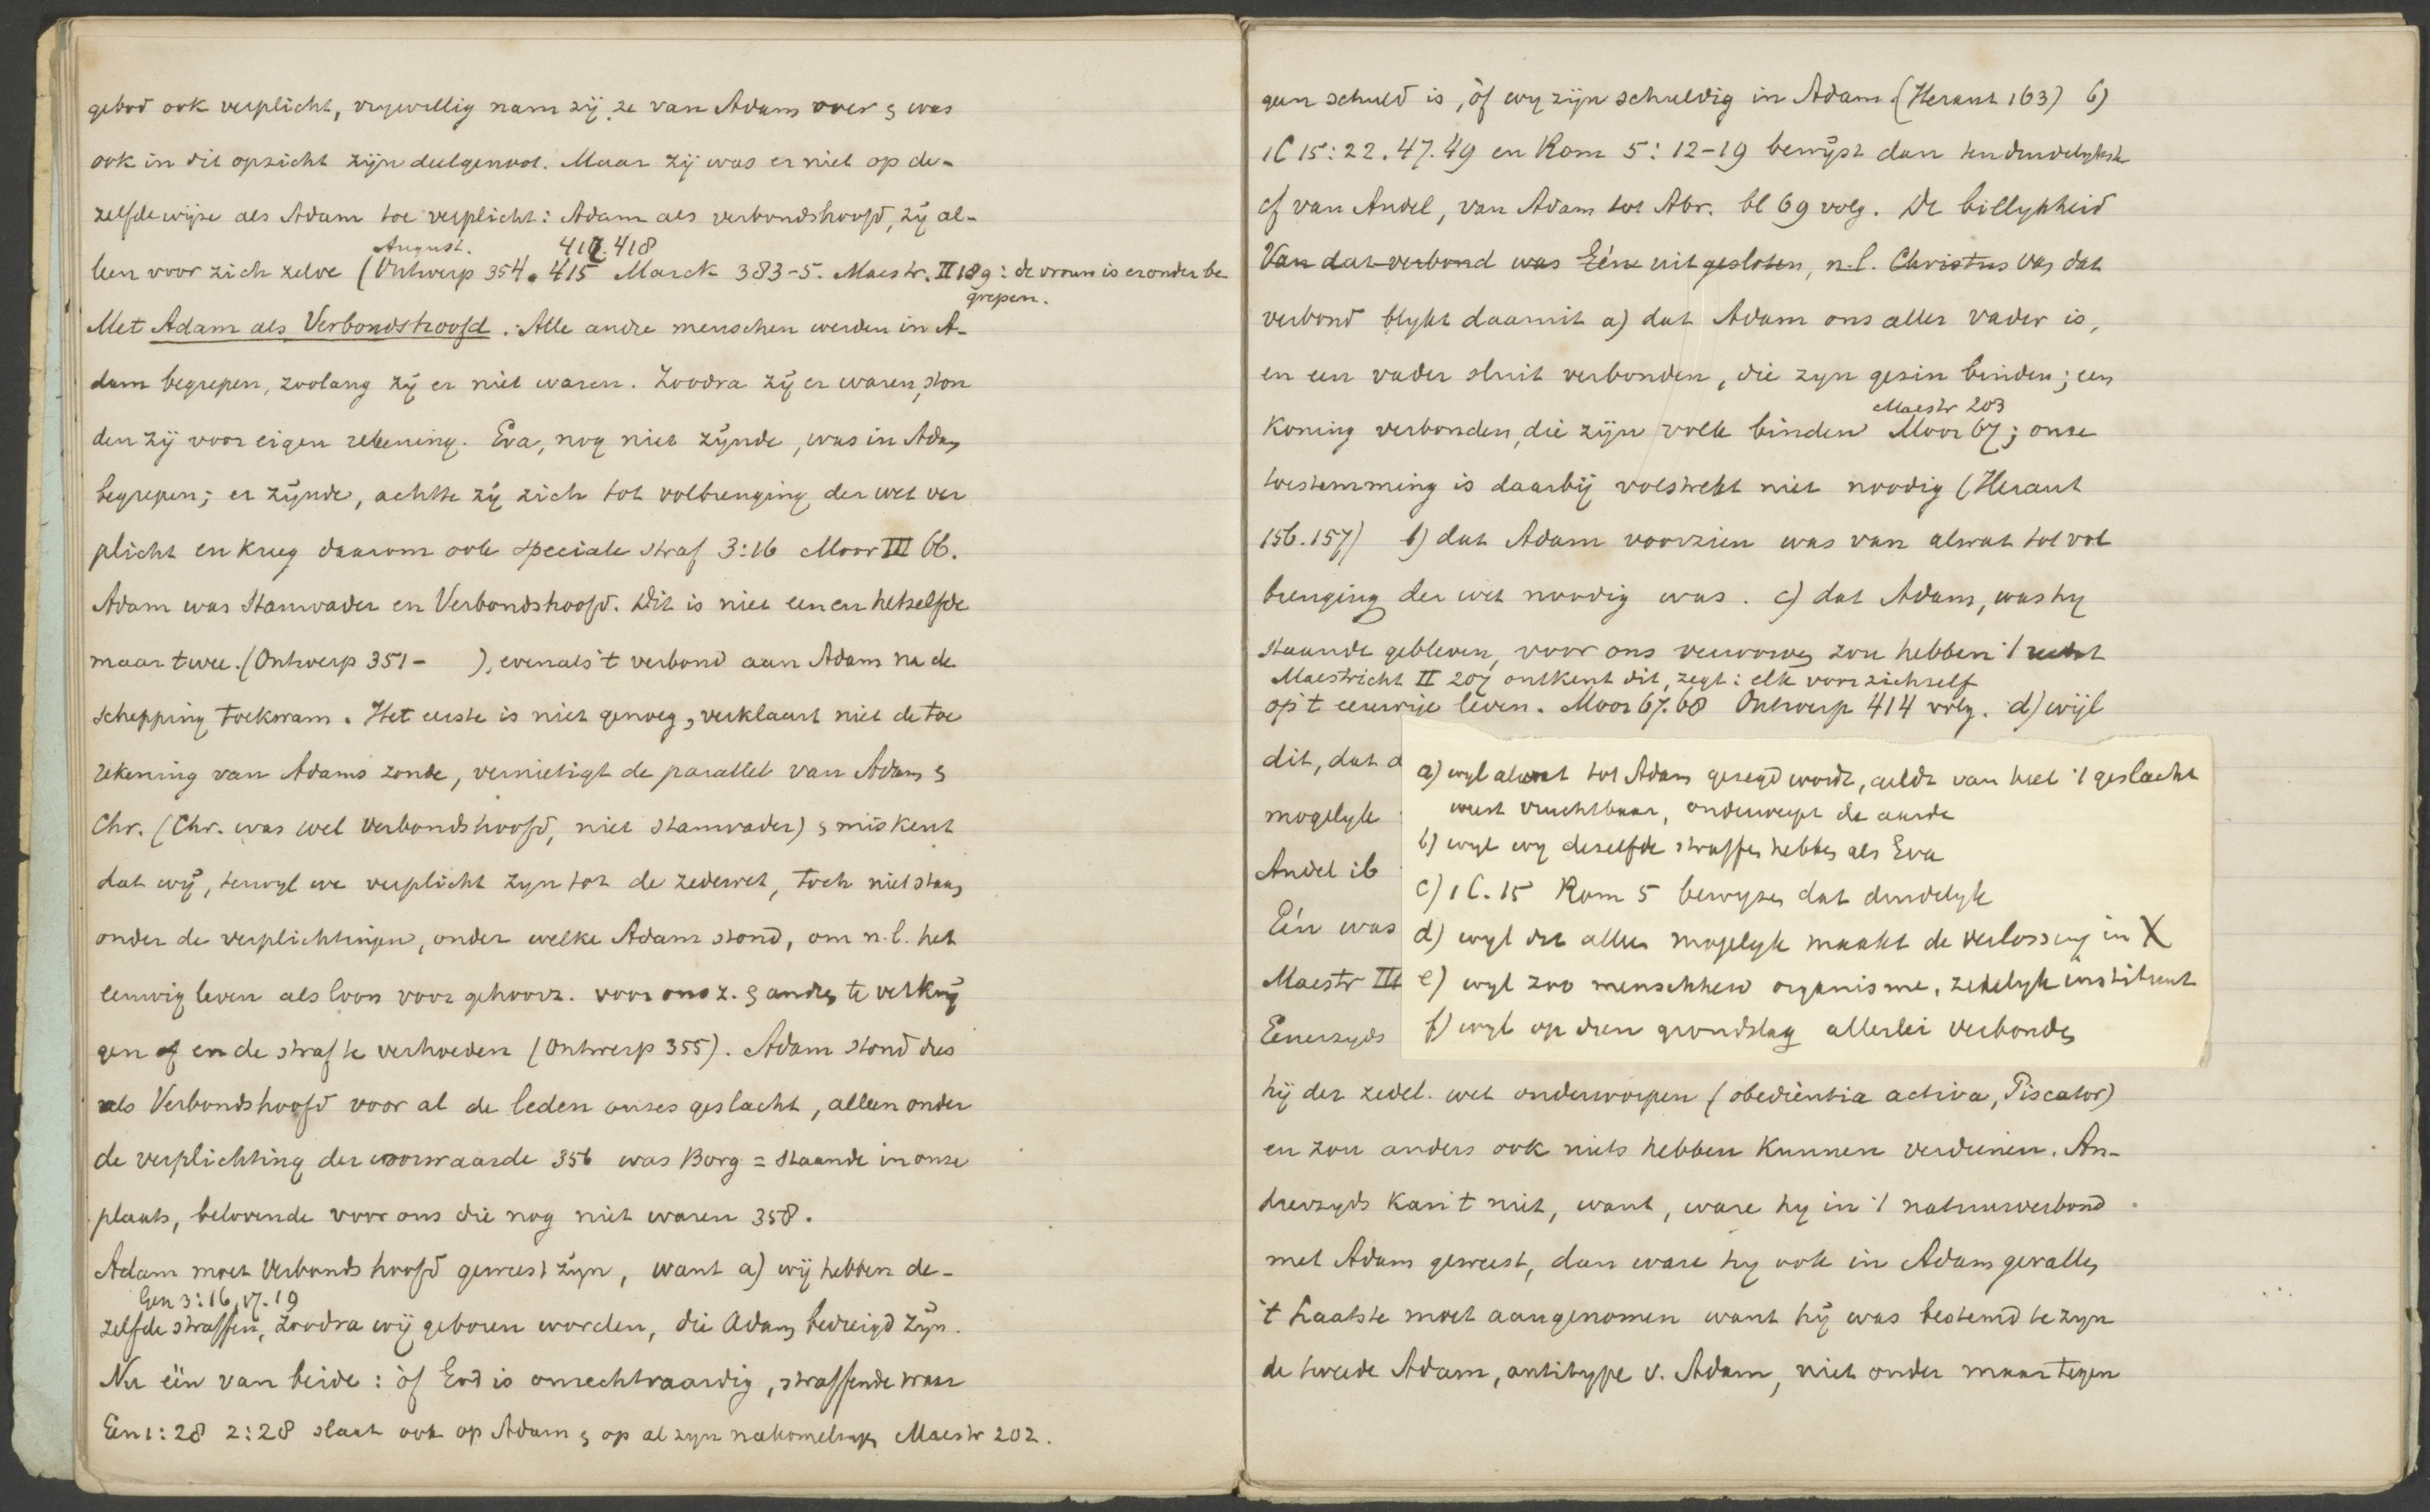 gebod ook verplicht, vrywillig nam zij ze van Adam over & was
ook in dit opzicht zijn deelgenoot. Maar zij was er niet op de-
zelfde wijze als Adam toe verplicht: Adam als verbondshoofd, zij al-
August. 417.418
leen voor zich zelve (Ontwerp 354. 415 Marck 383-5. Maestr. II 189: de vrouw is eronder be
grepen.
Met Adam als Verbondshoofd. Alle andre menschen werden in A-
dam begrepen, zoolang zij er niet waren. Zoodra zij er waren, ston
den zij voor eigen rekening. Eva, nog niet zijnde, was in Adam
begrepen; er zijnde, achtte zij zich tot volbrenging der wet ver
plicht en kreeg daarom ook speciale straf 3:16 Moor III 66.
Adam was Stamvader en Verbondshoofd. Dit is niet een en hetzelfde
maar twee. (Ontwerp 351- ), evenals 't verbond aan Adam na de
schepping toekwam. Het eerste is niet genoeg, verklaart niet de toe
rekening van Adams zonde, vernietigt de parallel van Adam &
Chr. (Chr. was wel verbondshoofd, niet stamvader) & miskent
dat wij, terwyl we verplicht zyn tot de zedewet, toch niet staan
onder de verplichtingen, onder welke Adam stond, om n.l. het
eeuwig leven als loon voor gehoorz. voor ons z. & andren te verkrij
gen of en de straf te verhoeden (Ontwerp 355). Adam stond dus
als Verbondshoofd voor al de leden onzes geslacht, alleen onder
de verplichting der voorwaarde 356 was Borg = staande in onze
plaats, belovende voor ons die nog niet waren 358.
Adam moet Verbondshoofd geweest zijn, want a) wij hebben de-
Gen 3:16, 17. 19
zelfde straffen, zoodra wij geboren worden, die Adam bedreigd zijn.
Nu één van beide: òf God is onrechtvaardig, straffende waar
Gen 1:28 2:28 slaat ook op Adam & op al zyn nakomelingen Maestr 202.
geen schuld is, òf wy zijn schuldig in Adam. (Heraut 163) b)
1C 15:22.47.49 en Rom 5:12-19 bewijst dan ten duidelykste
cf van Andel, van Adam tot Abr. bl 69 volg. De billykheid
Van dat verbond was Eéne uitgesloten, n.l. Christus van dat
verbond blykt daaruit a) dat Adam ons aller vader is,
en een vader sluit verbonden, die zyn gezin binden; een
Maestr 203
Koning verbonden, die zijn volk binden Moor 67; onze
toestemming is daarbij volstrekt niet noodig (Heraut
156.157) b) dat Adam voorzien was van alwat tot vol
brenging der wet noodig was. c) dat Adam, was hy
staande gebleven, voor ons verworven zou hebben 't recht
Maestricht II 207 ontkent dit, zegt: elk voor zichzelf
op 't eeuwige leven. Moor 67.68 Ontwerp 414 volg. d) wijl
dit, dat
mogelyk
Andel ib
Eén was
Maestr III
Eenerzyds
a) wyl alwat tot Adam gezegd wordt, geldt van heel 't geslacht
weest vruchtbaar, onderwerpt de aarde
b) wyl wy dezelfde straffen hebben als Eva
c) 1 C. 15 Rom 5 bewyzen dat duidelyk
d) wyl dit alleen mogelyk maakt de verlossing in X
e) wyl zoo menschheid organisme, zedelyk instituut
f) wyl op dien grondslag allerlei verbonden
hij der zedel. wet onderworpen (obedientia activa, Piscator)
en zou anders ook niets hebben kunnen verdienen. An-
derzyds kan 't niet, want, ware hy in 't natuurverbond
met Adam geweest, dan ware hy ook in Adam gevallen
't Laatste moet aangenomen want hij was bestemd te zyn
de tweede Adam, antitype v. Adam, niet onder maar tegen